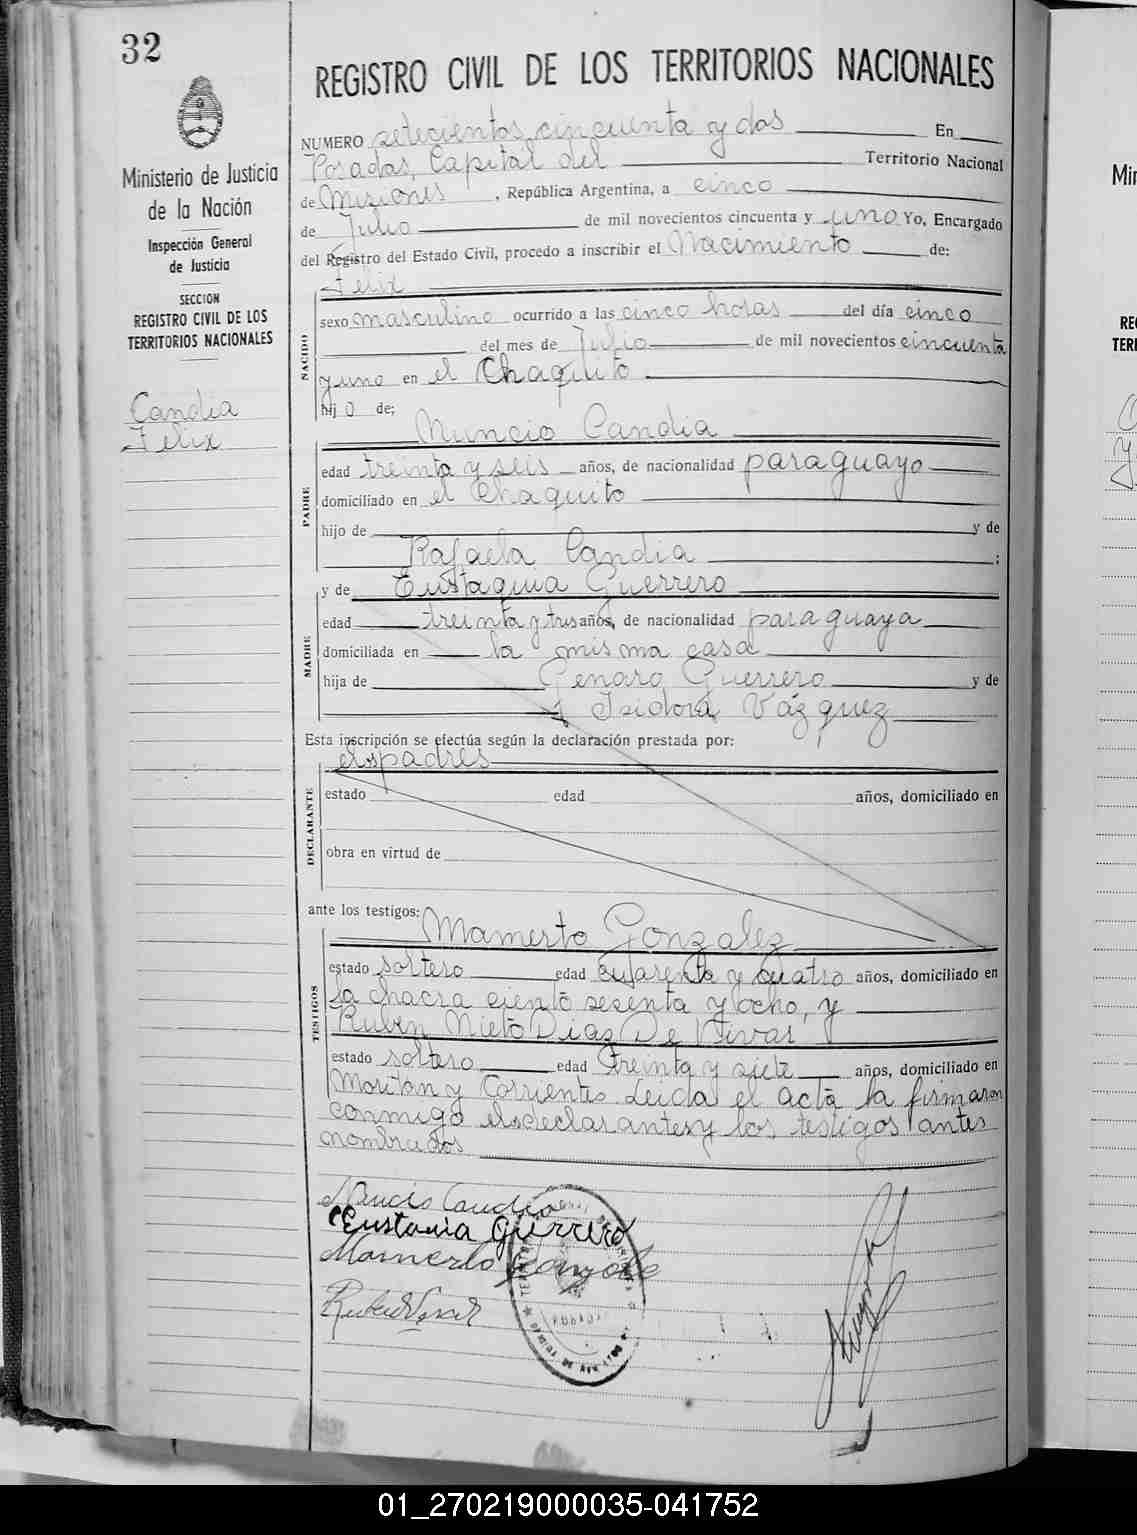 32
Ministerio de Justicia
de la Nación
Inspección General
de Justicia
SECCION
REGISTRO CIVIL DE LOS
TERRITORIOS NACIONALES
Candia
Felix
REGISTRO CIVIL DE LOS TERRITORIOS NACIONALES
NUMERO setecientos cincuenta y dos En
Posadas, Capital del Territorio Nacional
de Misiones, República Argentina, a cinco
de Julio de mil novecientos cincuenta y uno Yo, Encargado
del Registro del Estado Civil, procedo a inscribir el Nacimiento de:
Felix
NACIDO
sexo masculino ocurrido a las cinco horas del día cinco
del mes de Julio de mil novecientos cincuenta
y uno en el Chaquito
hijo de;
Nuncio Candia
PADRE
edad treinta y seis años, de nacionalidad paraguayo
domiciliado en el Chaquito
hijo de y de
Rafaela Candia ;
y de Eustaquia Guerrero
MADRE
edad treinta y tres años, de nacionalidad paraguaya
domiciliada en la misma casa
hija de Genaro Guerrero y de
Isidora Vázquez
Esta inscripción se efectúa según la declaración prestada por:
els padres
DECLARANTE
estado edad años, domiciliado en
obra en virtud de
ante los testigos:
Mamerto Gonzalez
TESTIGOS
estado soltero edad cuarenta y cuatro años, domiciliado en
la chacra ciento secenta y ocho, y
Ruben Nieto Diaz De Vivar
estado soltero edad treinta y siete años, domiciliado en
Moritan y Corrientes Leida el acta la firmaron
conmigo els declarantes y los testigos antes
nombrados
Nuncio Candia
Eustaquia Guerrero
Mamerto Gonzale
01_270219000035-041752